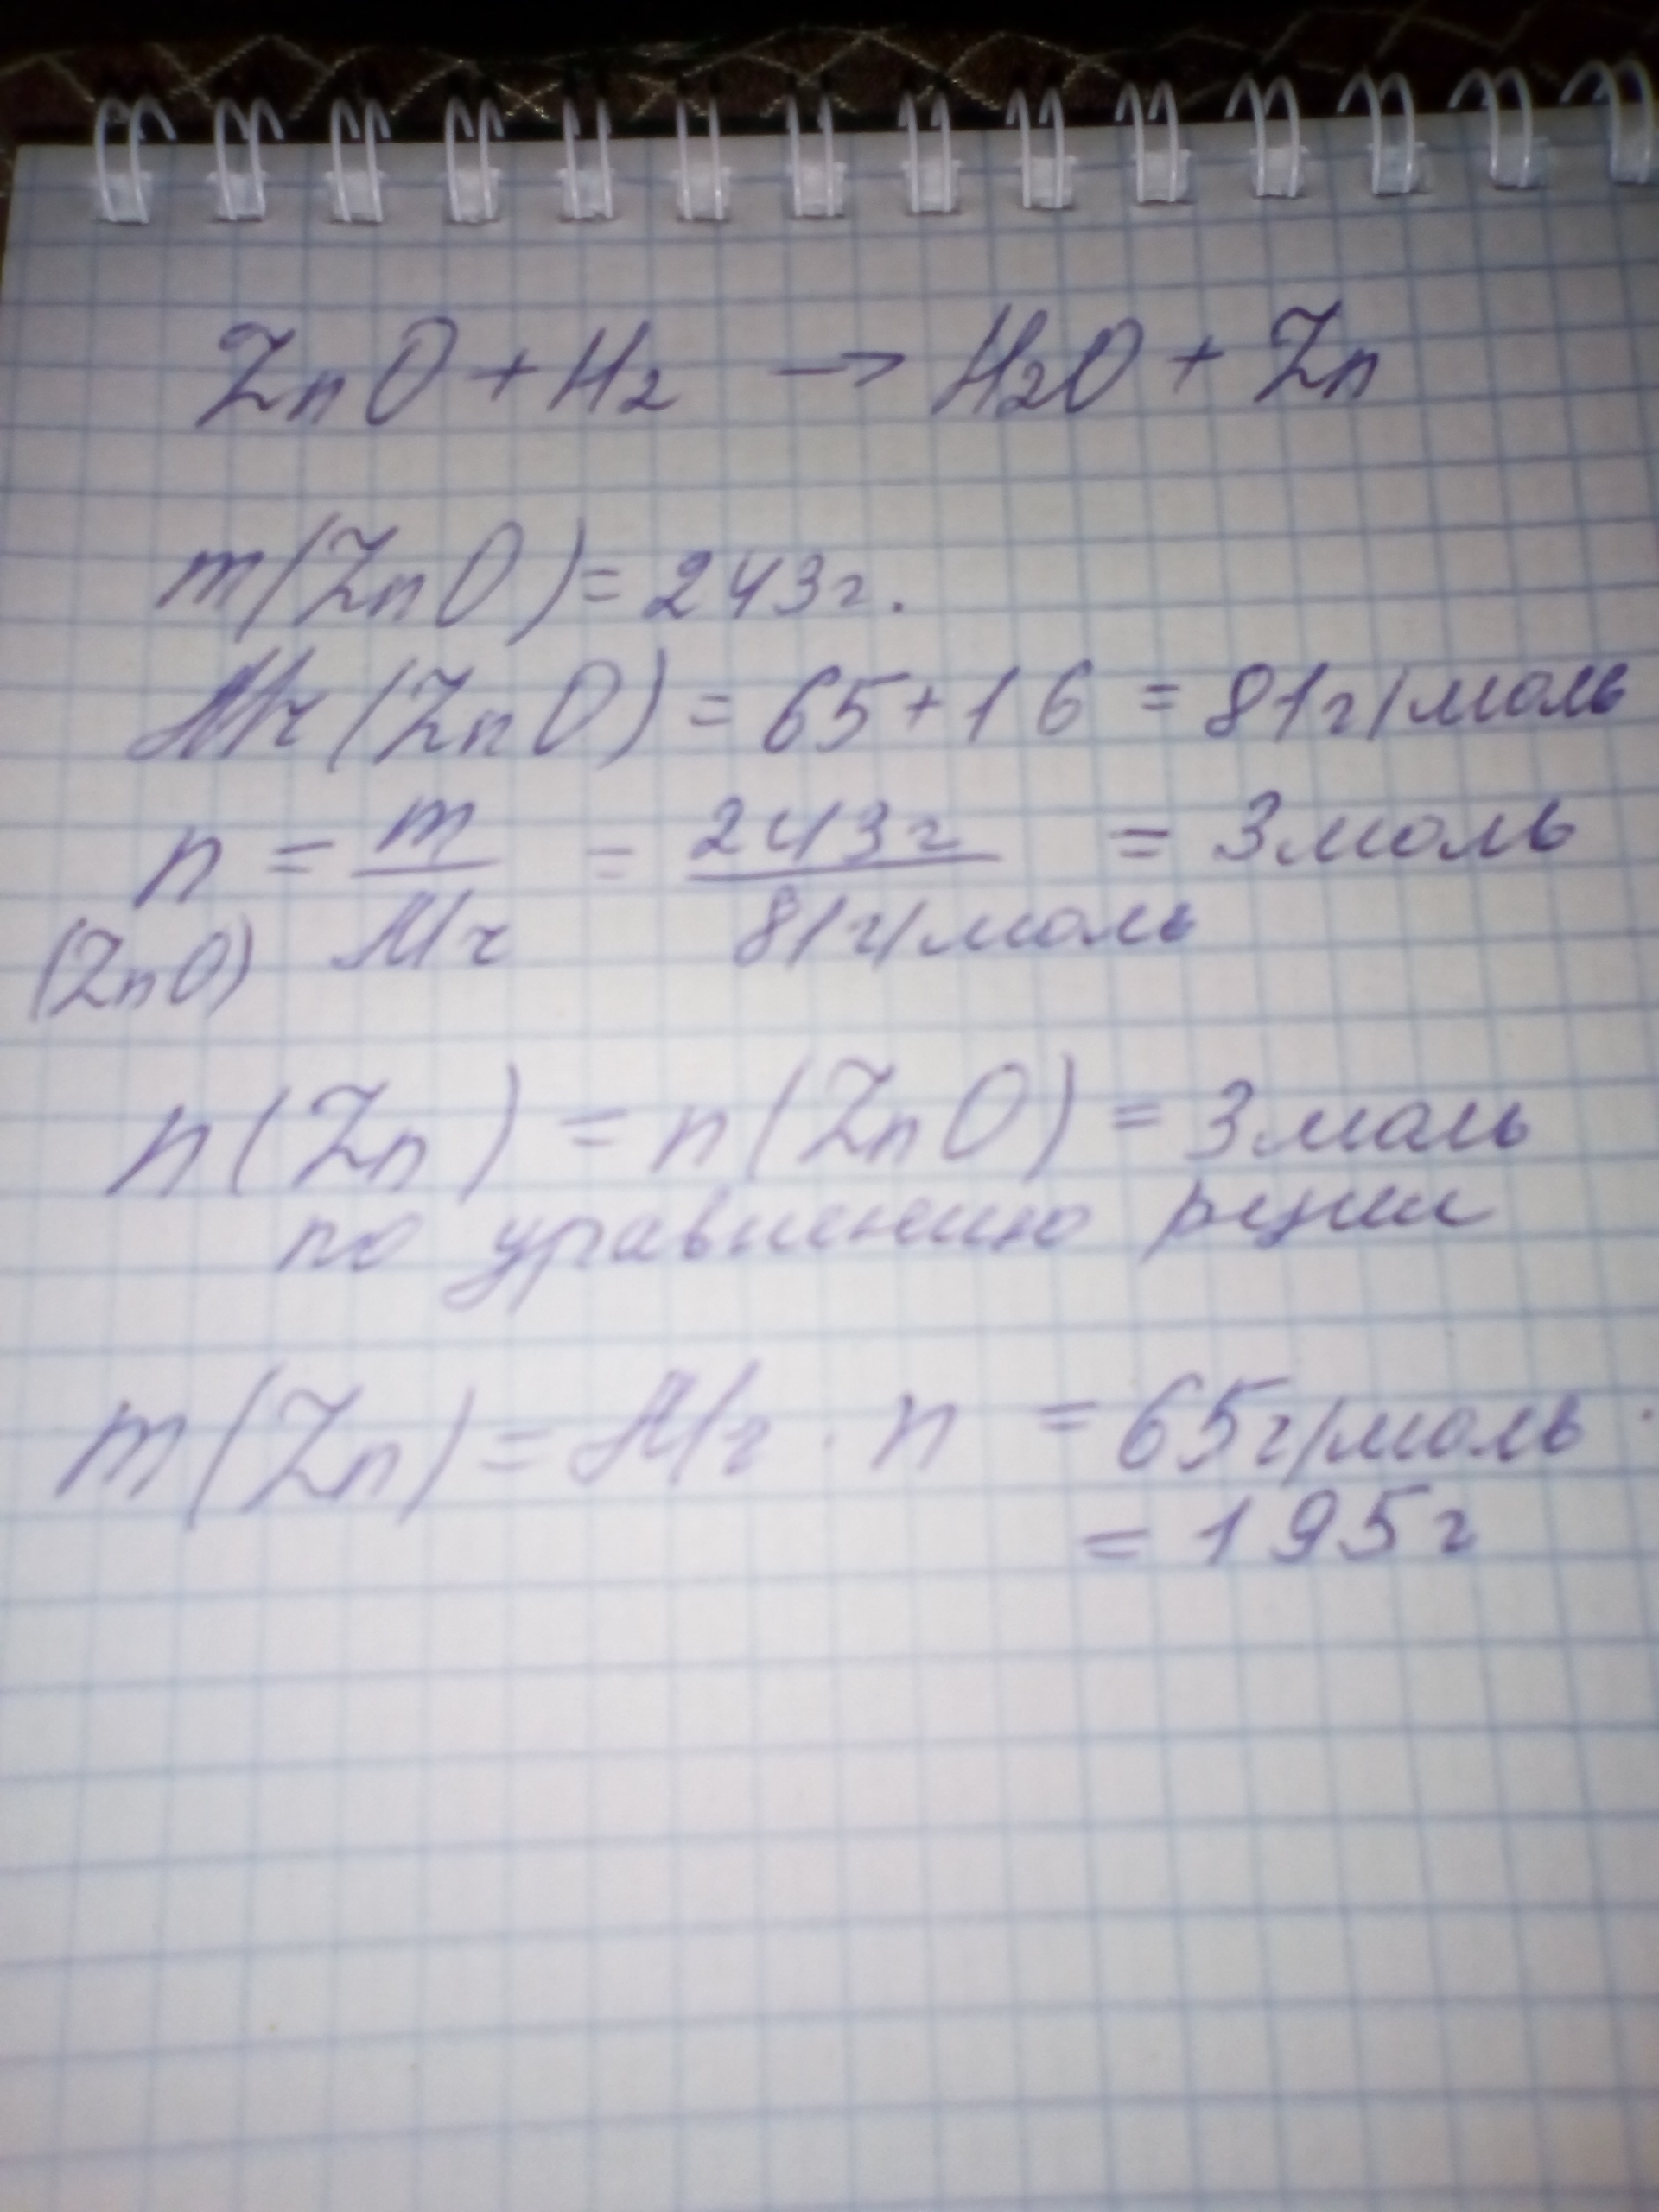 ZnO + H2 → H2O + Zn
m(ZnO) = 243г.
Mr(ZnO) = 65 + 16 = 81г/моль
n = m/Mr = 243г/81г/моль = 3моль
(ZnO)
n(Zn) = n(ZnO) = 3моль
по уравнению рции
m(Zn) = Mr · n = 65г/моль ·
= 195г